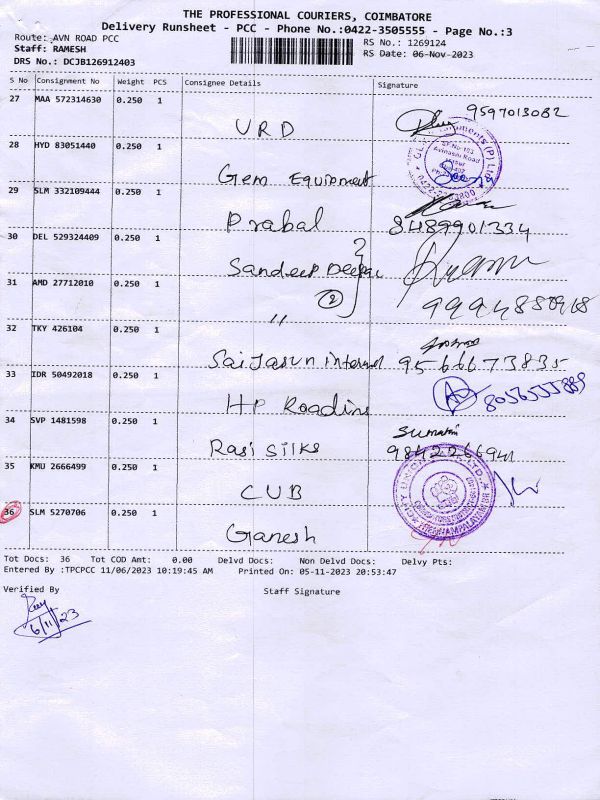 THE PROFESSIONAL COURIERS, COIMBATORE
Delivery Runsheet - PCC - Phone No.:0422-3505555 - Page No.:3
Route: AVN ROAD PCC
RS No.: 1269124
Staff: RAMESH
RS Date: 06-Nov-2023
DRS No.: DCJB126912403
S No Consignment No Weight PCS Consignee Details Signature
27 MAA 572314630 0.250 1 VRD 9597013082
28 HYD 83051440 0.250 1 Gem Equipment
29 SLM 332109444 0.250 1 Prabal 8489901334
30 DEL 529324409 0.250 1 Sandeep Deepac
31 AMD 27712010 0.250 1 " (2)
32 TKY 426104 0.250 1 Sai Tarun 9566673835
33 IDR 50492018 0.250 1 HP
34 SVP 1481598 0.250 1 Rasi Silks
35 KMU 2666499 0.250 1 CUB
36 SLM 5270706 0.250 1 Ganesh
Tot Docs: 36 Tot COD Amt: 0.00 Delvd Docs: Non Delvd Docs: Delvy Pts:
Entered By :TPCPCC 11/06/2023 10:19:45 AM Printed On: 05-11-2023 20:53:47
Verified By Staff Signature
6/11/23